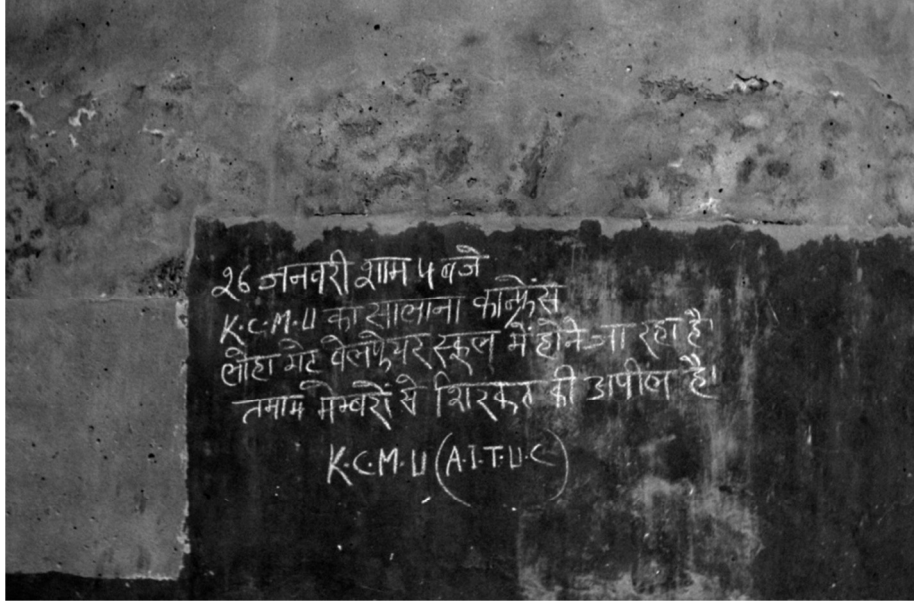 २६ जनवरी शाम ५ बजे
K.C.M.U का सालाना कान्फ्रेंस
लोहा गेट वेलफेयर स्कूल में होने जा रहा है।
तमाम मेम्बरों से शिरकत की अपील है।
K.C.M.U (A.I.T.U.C)